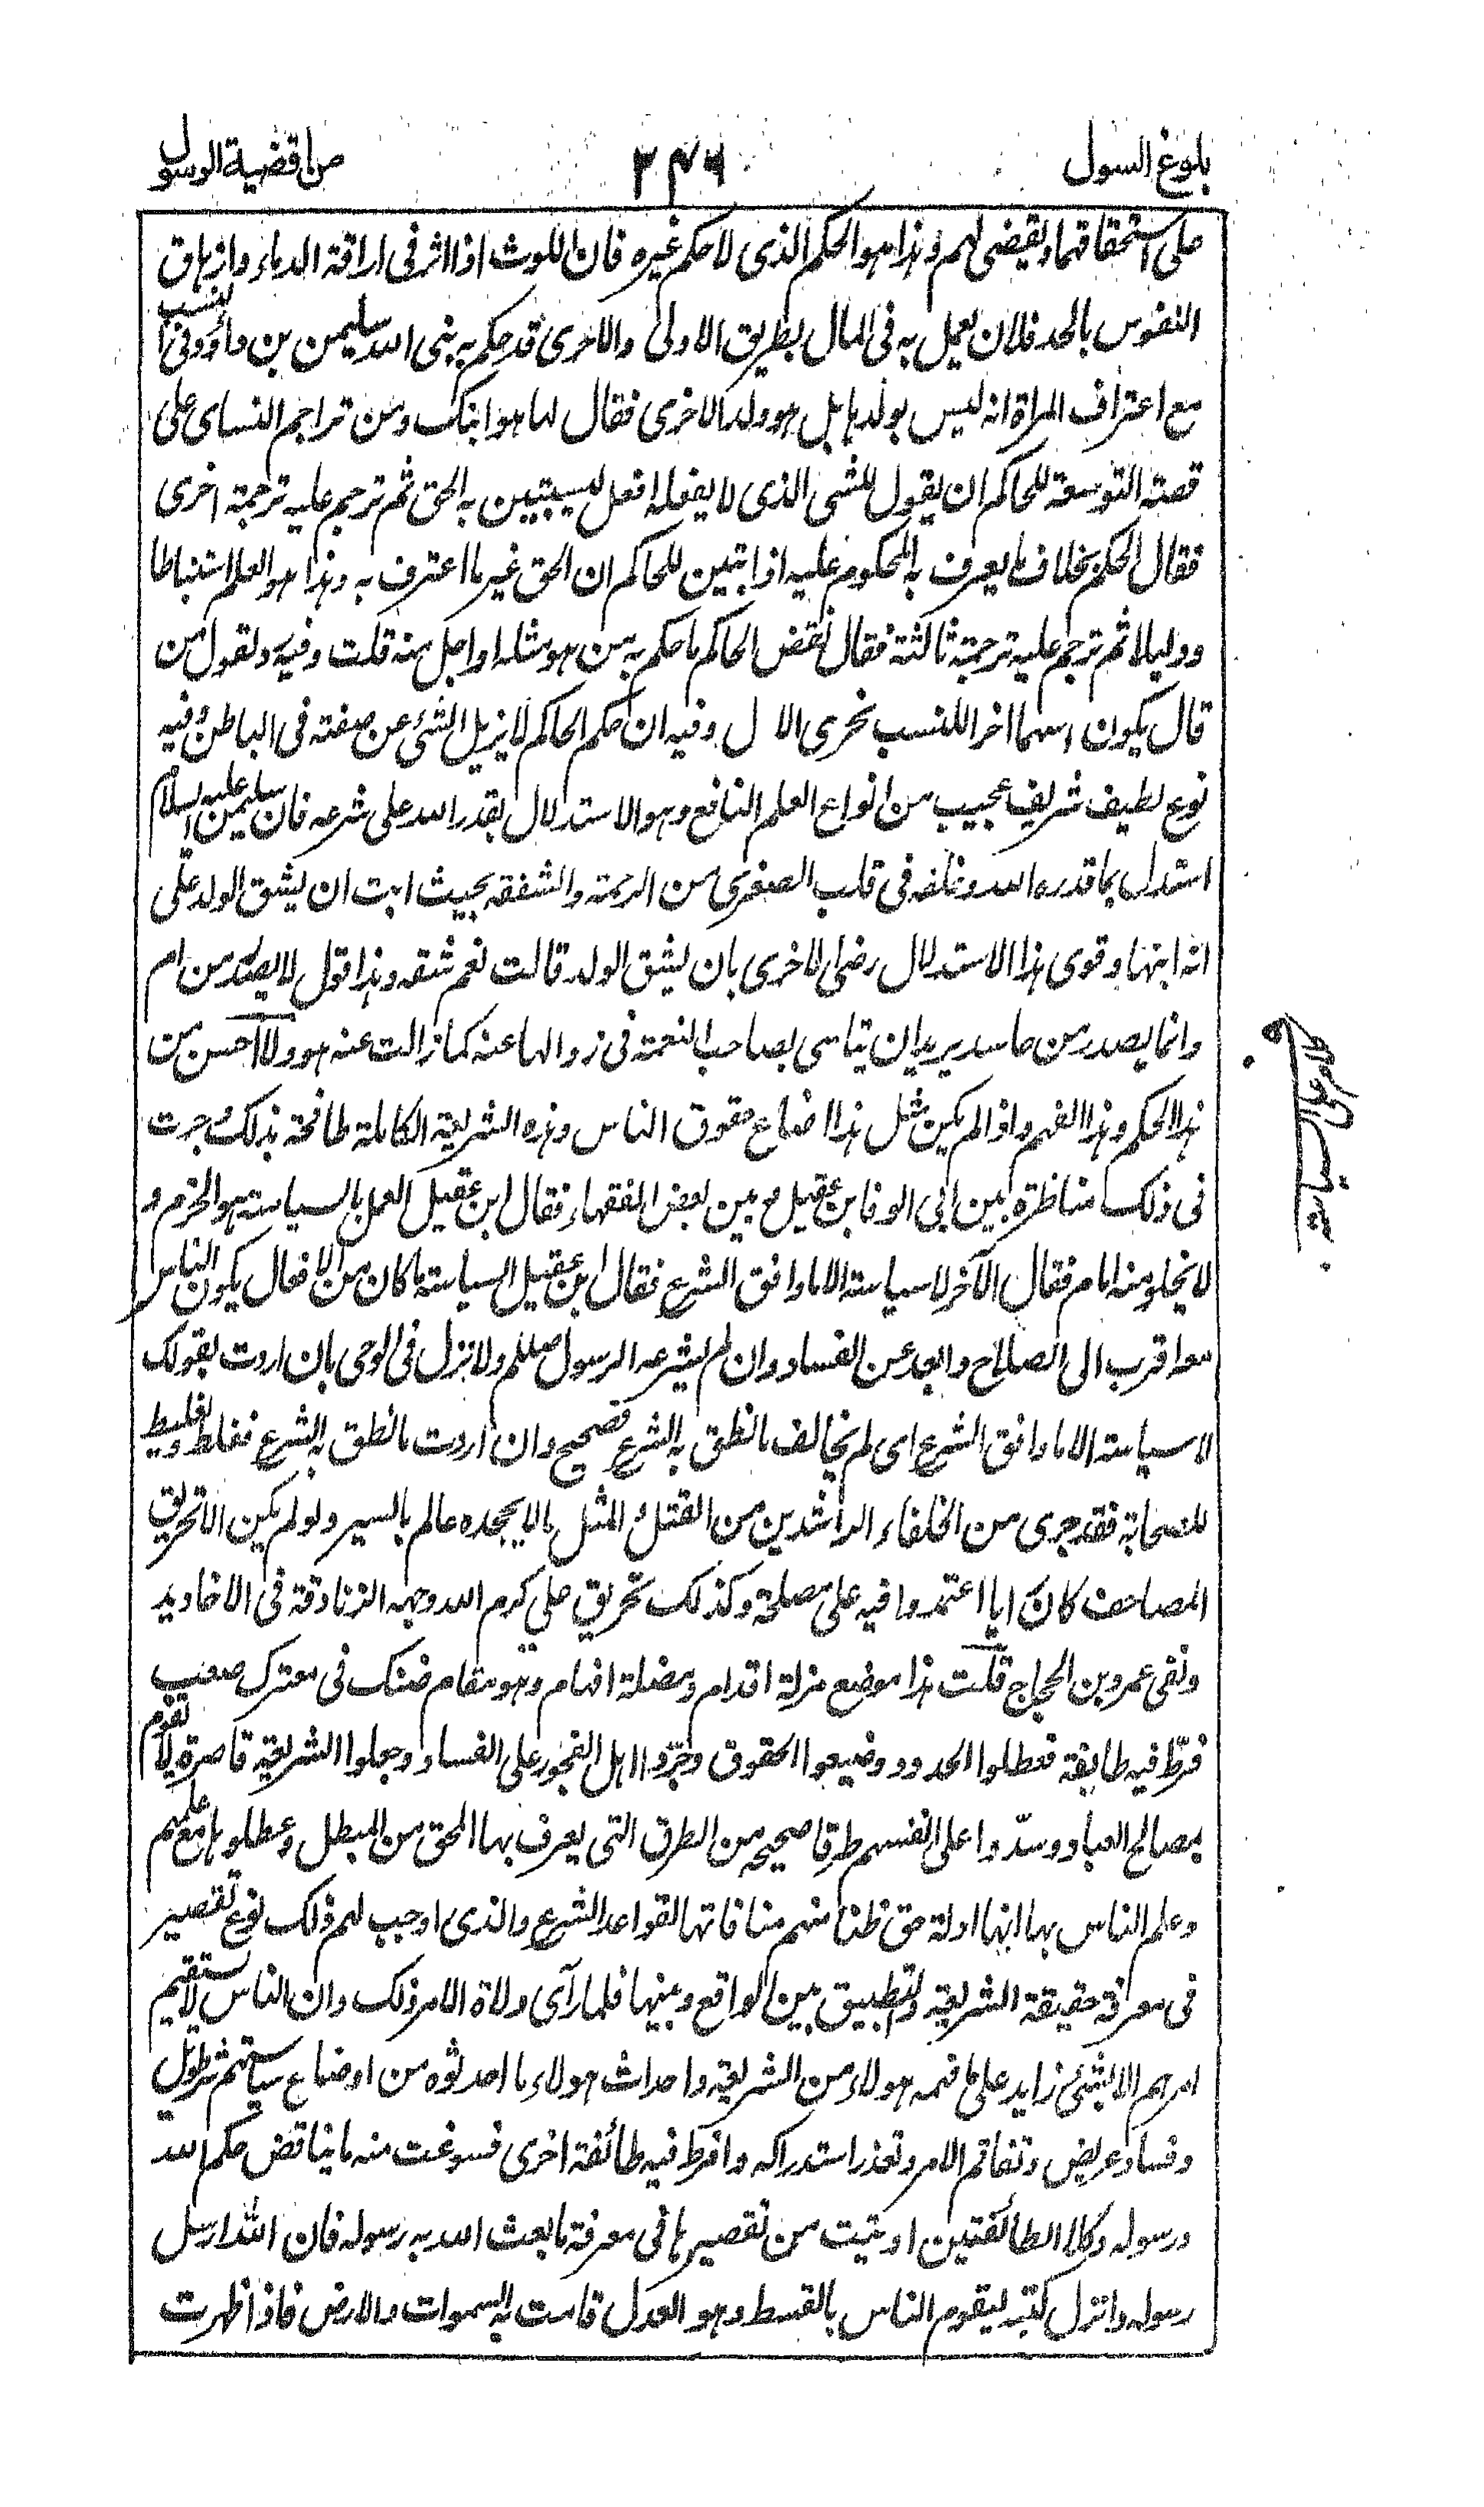 بلوغ السول
٣٤٦
من اقضية الرسول
على استحقاقها ويقضى لهم وهذا هو الحكم الذى لا حكم غيره فان اللوث اذا اثر فى اراقة الدماء وازهاق
النفوس بالحد فلان يعمل به فى المال بطريق الاولى والاخرى قد حكم به نبى الله سليمن بن داؤد فى النسب
مع اعتراف المراة انه ليس بولدها بل هو ولد الاخرى فقال لها هو ابنك ومن تراجم النساى على
قصته التوسعة للحاكم ان يقول للشى الذى لا يفعله افعل ليستبين به الحق ثم ترجم عليه ترجمة اخرى
فقال الحكم بخلاف ما يعرف به المحكوم عليه اذا تبين للحاكم ان الحق غير ما اعترف به وهذا هو العلم استنباطا
ودليلا ثم ترجم عليه ترجمة ثالثة فقال نقض الحاكم ما حكم به من هو مثله او اجل منه قلت وفيه رد لقول من
قال يكون اسما اخر للنسب نحرى الا ل وفيه ان حكم الحاكم لا يزيل الشئ عن صفته فى الباطن وفيه
نوع لطيف شريف عجيب من انواع العلم النافع وهو الاستدلال بقدر الله على شرعه فان سليمن عليه السلام
استدل بما قدره الله وخلقه فى قلب الصغرى من الرحمة والشفقه بحيث ابت ان يشق الولد على
انه ابنها وقوى هذا الاستدلال رضى الاخرى بان يشق الولد قالت نعم شقه وهذا قول لا يصدر من ام
وانما يصدر من حاسد يريد ان يتاسى بصاحب النعمة فى زوالها عنه كما زالت عنه هو ولا احسن من
هذا الحكم وهذا الفهم واذا لم يكن مثل هذا ضاع حقوق الناس وهذه الشريعة الكاملة طافحة بذلك وجرت
فى ذلك مناظرة بين ابى الوفا بن عقيل و بين بعض الفقهاء فقال ابن عقيل العمل بالسياسة هو الحزم و
لا يخلو منه امام فقال الآخر لا سياسة الا ما وافق الشرع فقال ابن عقيل السياسة ما كان من الافعال يكون الناس
معه اقرب الى الصلاح وابعد عن الفساد وان لم يشرعه الرسول صللم ولا نزل فى الوحى بان اردت بقولك
لا سياسة الا ما وافق الشرع اى لم يخالف ما نطق به الشرع فصحيح وان اردت ما نطق به الشرع فغلط وتغليط
للصحابة فقد جرى من الخلفاء الراشدين من القتل و المثل ما لا يجحده عالم بالسير ولو لم يكن الا تحريق
المصاحف كان رايا اعتمدوا فيه على مصلحة وكذلك تحريق على كرم الله وجهه الزنادقة فى الاخاديد
ونفى عمرو بن الحجاج قلت هذا موضع مزلة اقدام ومضلة افهام وهو مقام ضنك فى معترك صعب
فرّط فيه طايفة فعطلوا الحدود وضيعوا الحقوق وجرّوا اهل الفجور على الفساد وجعلوا الشريعة قاصرة لا تقوم
بمصالح العباد وسدّوا على انفسهم طرقا صحيحه من الطرق التى يعرف بها المحق من المبطل وعطلوها مع علمهم
وعلم الناس بها انها ادلة حق ظنا منهم منافاتها القواعد الشرع والذى اوجب لهم ذلك نوع تقصير
فى معرفة حقيقة الشريعة والتطبيق بين الواقع وبينها فلما رآى ولاة الامر ذلك وان الناس لا يستقيم
امرهم الا بشئ زايد على ما فهمه هولاء من الشريعة واحداث هولاء ما احدثوه من اوضاع سياستهم شر طويل
وفساد عريض وتفاقم الامر وتعذر استدراكه وافرط فيه طائفة اخرى فسوغت منه ما يناقض حكم الله
ورسوله وكلا الطائفتين اوتيت من تقصيرها فى معرفة ما بعث الله به رسوله فان الله ارسل
رسوله وانزل كتبه ليقوم الناس بالقسط وهو العدل قامت به السموات والارض فاذا ظهرت